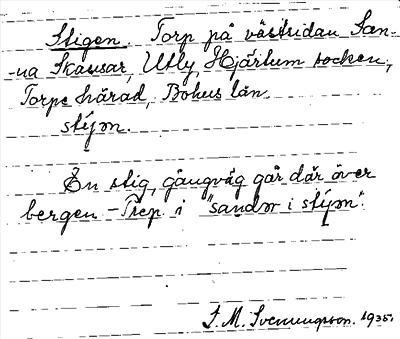 Stigen. Torp på västsidan San-
-na Skausar, Utby, Hjärtum socken,
Torpe härad, Bohus län.
stijən.
En stig, gångväg går där över
bergen - Prep. i "sandər i stijən".
J. M. Svenungsson. 1935.